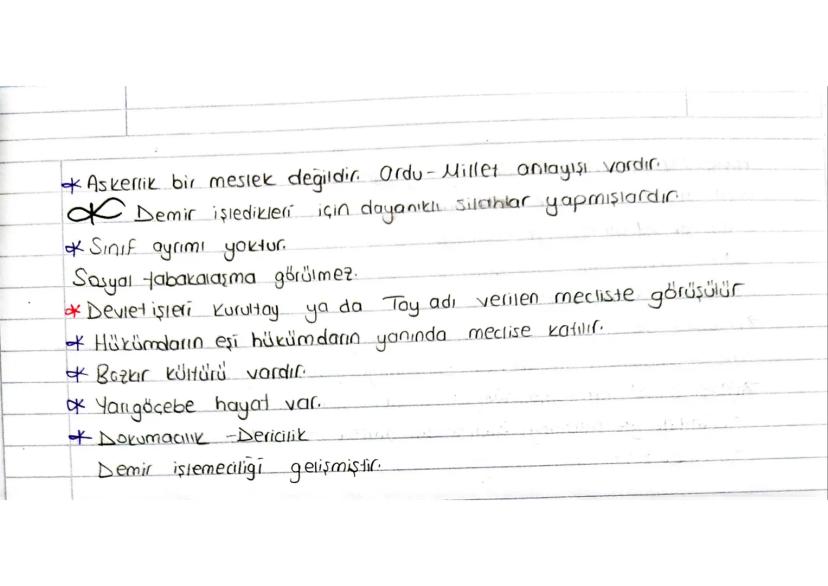 * Askerlik bir meslek değildir. Ordu-Millet anlayışı vardır.
* Demir işledikleri için dayanıklı silahlar yapmışlardır.
* Sınıf ayrımı yoktur.
Sosyal tabakalaşma görülmez.
* Devlet işleri kurultay ya da Toy adı verilen mecliste görüşülür
* Hükümdarın eşi hükümdarın yanında meclise katılır.
* Bozkır kültürü vardır.
* Yarıgöçebe hayat var.
* Dokumacılık -Dericilik
Demir işlemeciliği gelişmiştir.